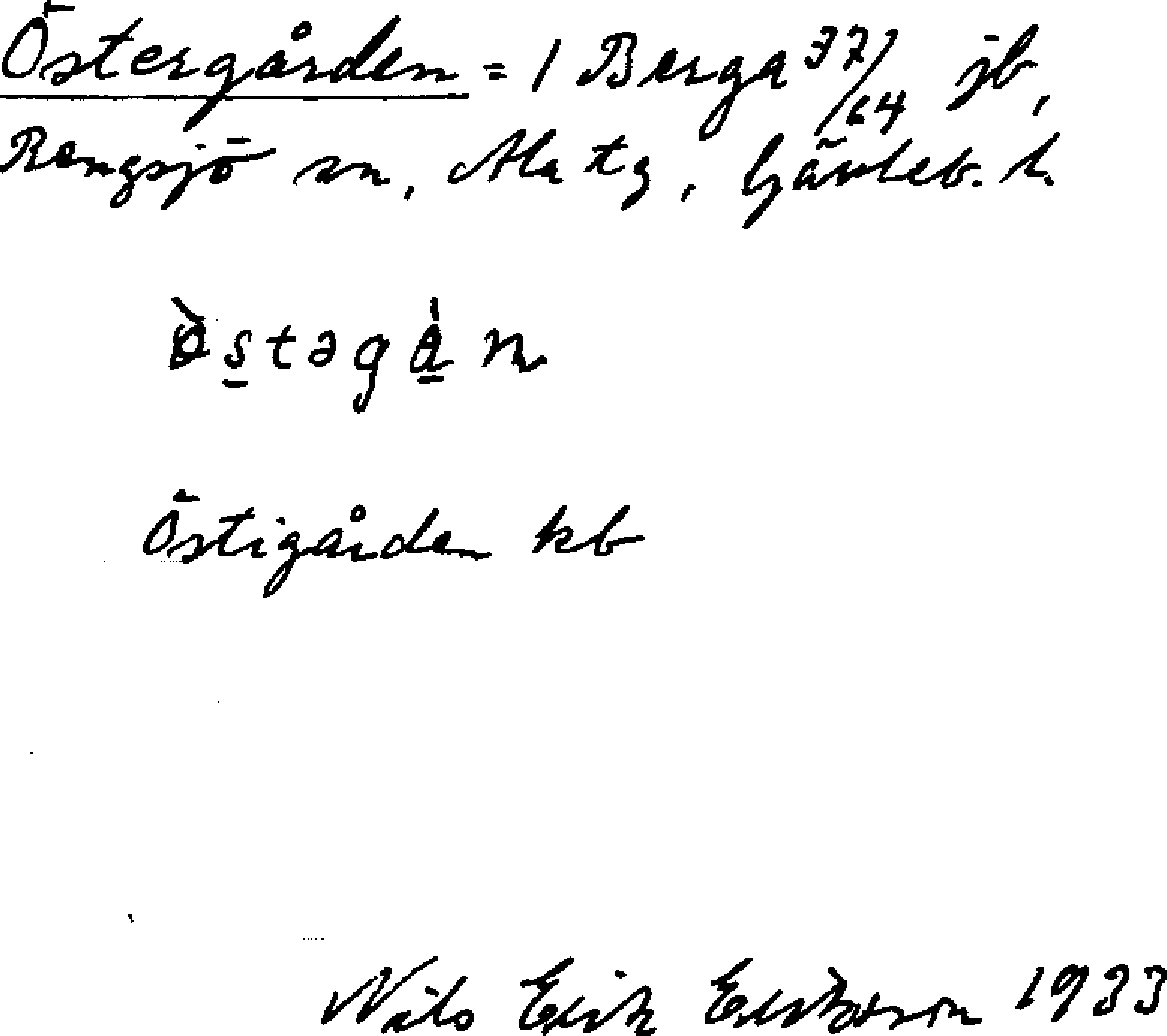 Östergården = 1 Berga 37/64 jb,
Rengsjö sn, Ala tg, Gävleb. l.
östəgån
Östigården kb
Nils Erik Eriksson 1933